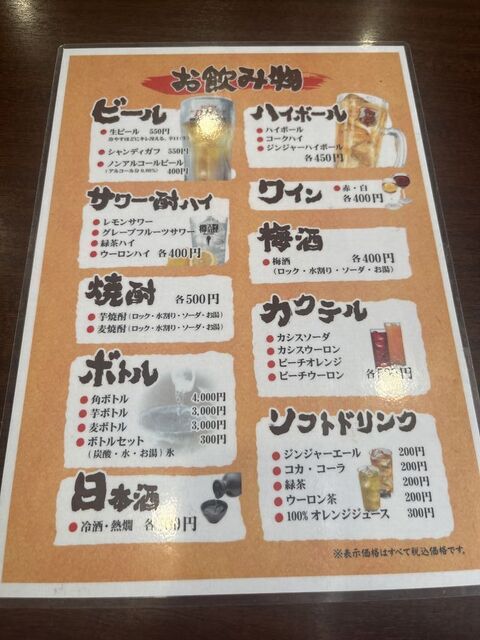 お飲み物
ビール
生ビール 550円
シャンディガフ 550円
ノンアルコールビール
(アルコール分0.00%) 400円
サワー・酎ハイ
レモンサワー
グレープフルーツサワー
緑茶ハイ
ウーロンハイ 各400円
焼酎 各500円
芋焼酎(ロック・水割り・ソーダ・お湯)
麦焼酎(ロック・水割り・ソーダ・お湯)
ボトル
角ボトル 4,000円
芋ボトル 3,000円
麦ボトル 3,000円
ボトルセット 300円
(炭酸・水・お湯)氷
日本酒
冷酒・熱燗 各 円
ハイボール
ハイボール
コークハイ
ジンジャーハイボール
各450円
ワイン
赤・白
各400円
梅酒
梅酒 各400円
(ロック・水割り・ソーダ・お湯)
カクテル
カシスソーダ
カシスウーロン
ピーチオレンジ
ピーチウーロン
各 円
ソフトドリンク
ジンジャーエール 200円
コカ・コーラ 200円
緑茶 200円
ウーロン茶 200円
100%オレンジジュース 300円
※表示価格はすべて税込価格です。